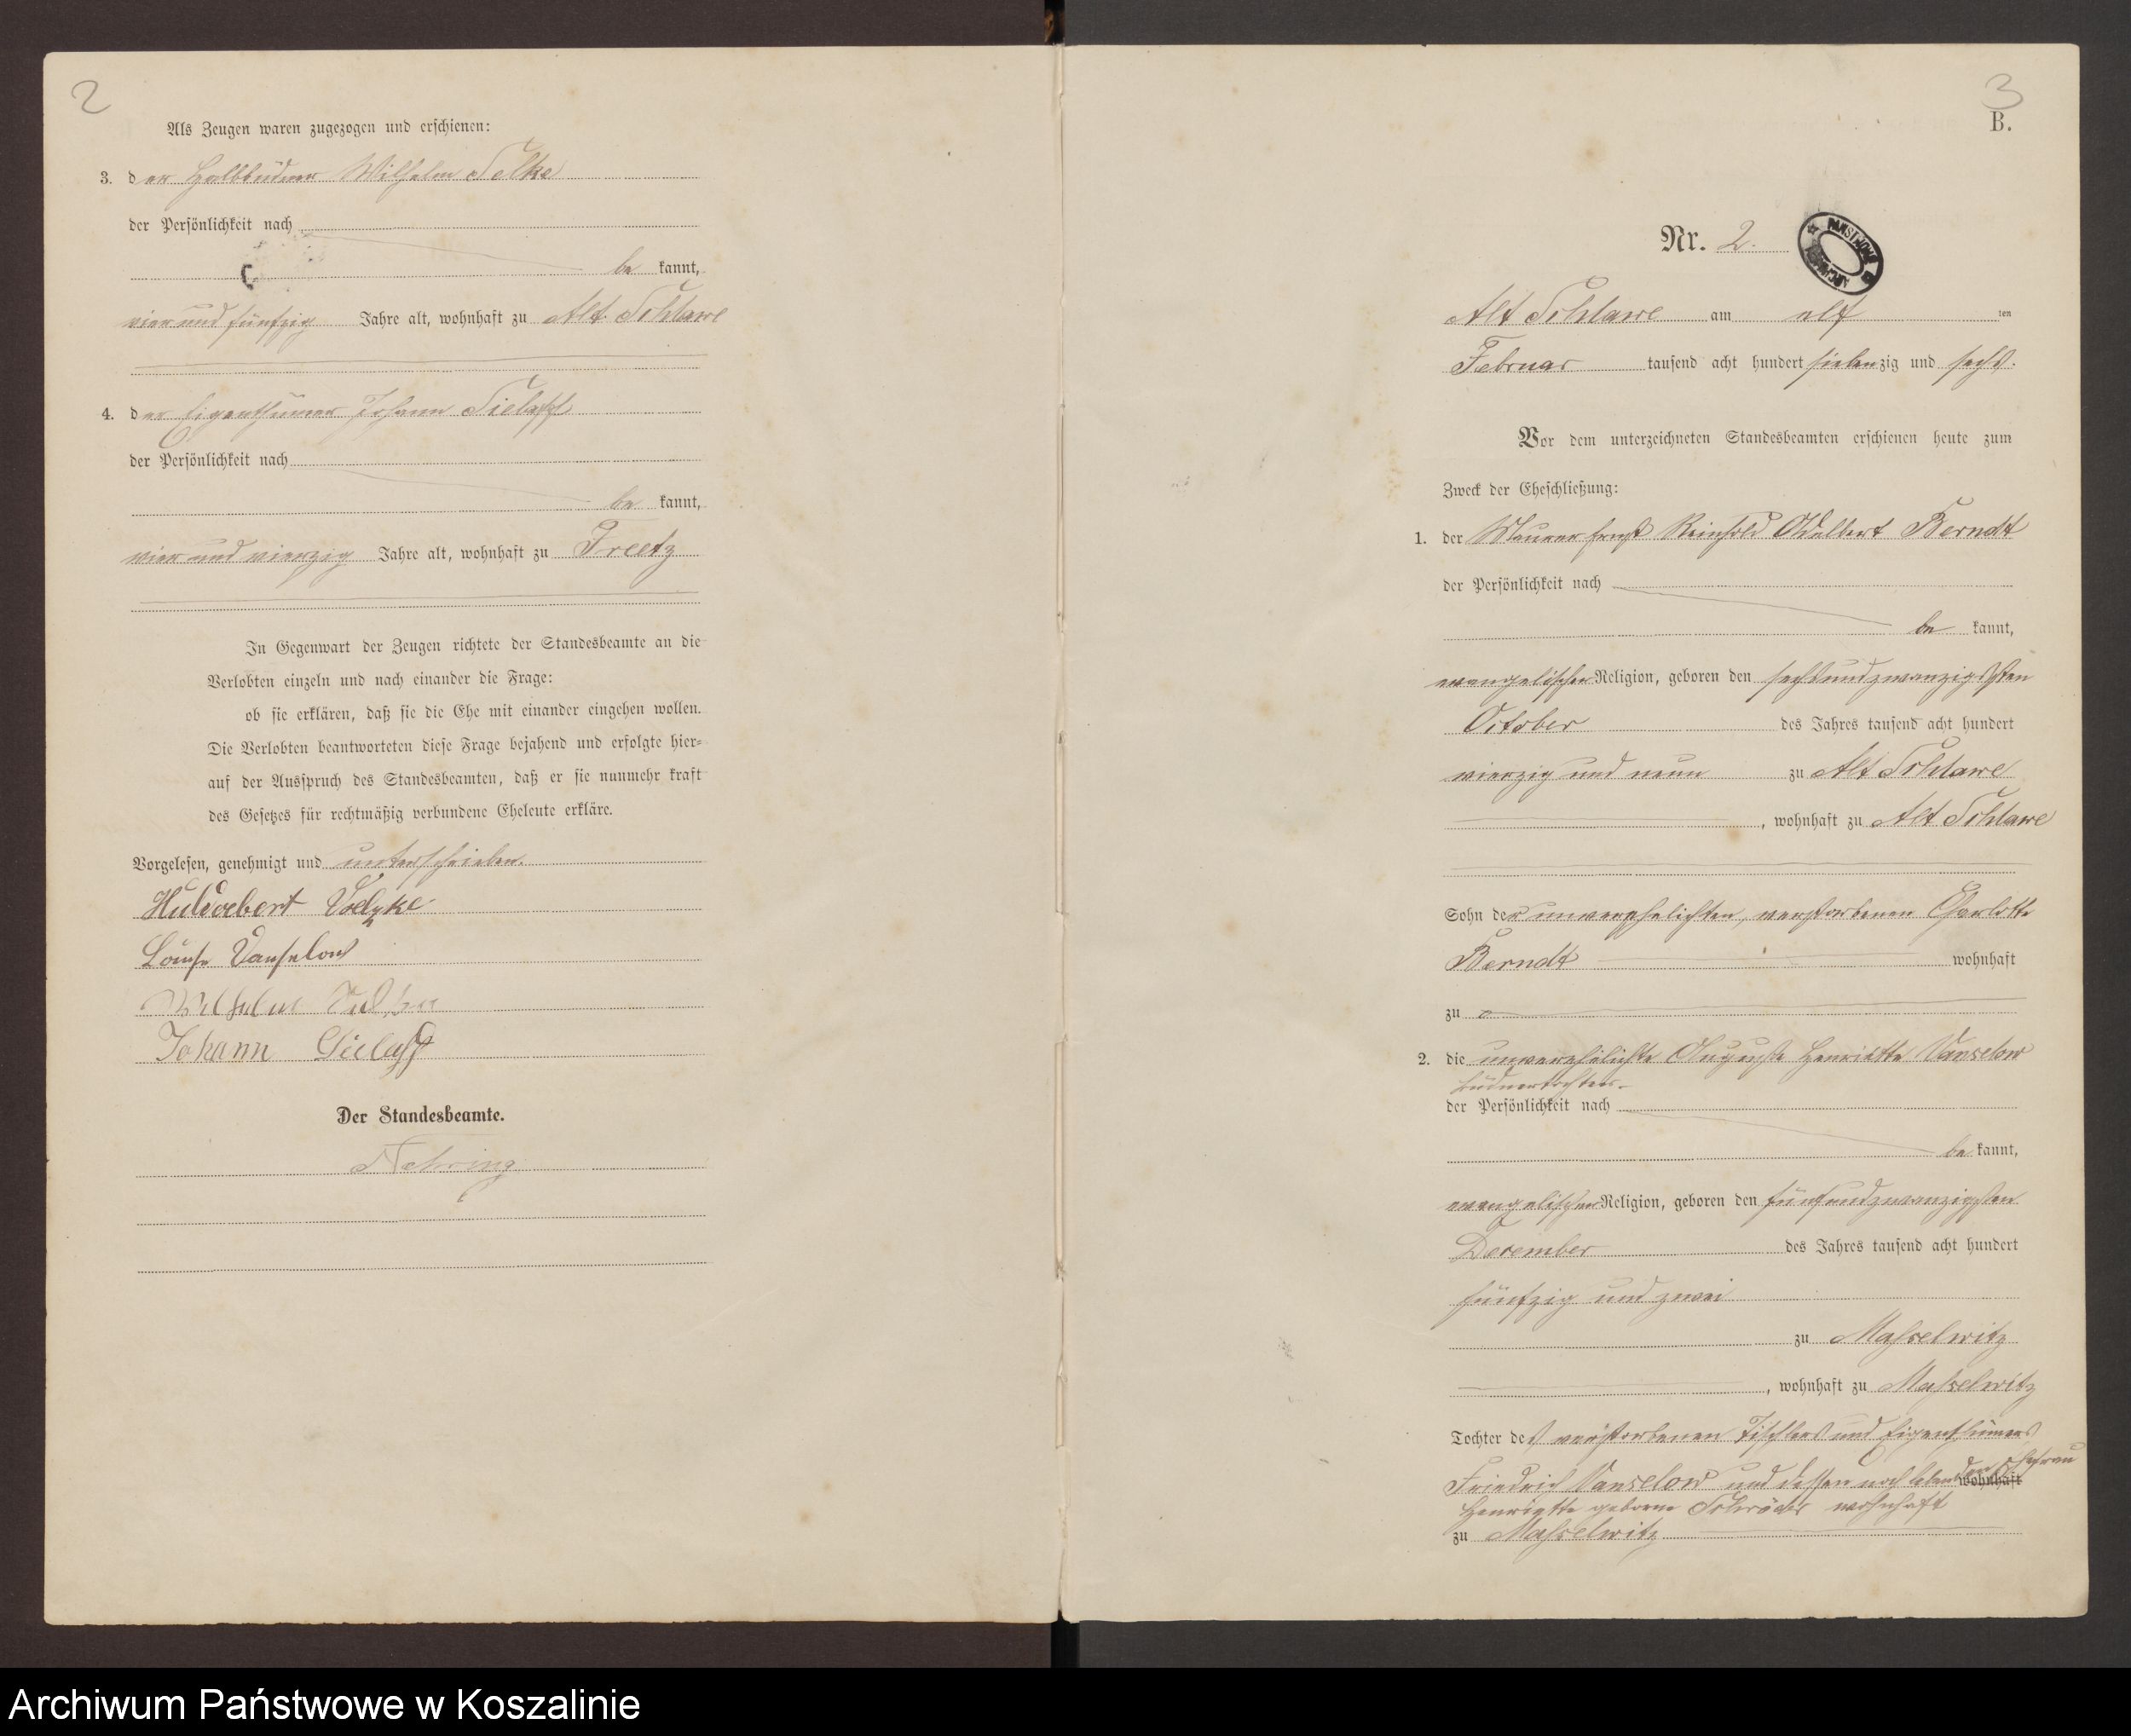 2
Als Zeugen waren zugezogen und erschienen:
3. der Halbbüdner Wilhelm Selke
der Persönlichkeit nach
be kannt,
vier und fünfzig Jahre alt, wohnhaft zu Alt Schlawe
4. der Eigenthümer Johann Sielaff
der Persönlichkeit nach
be kannt,
vier und vierzig Jahre alt, wohnhaft zu Freetz
In Gegenwart der Zeugen richtete der Standesbeamte an die
Verlobten einzeln und nach einander die Frage:
ob sie erklären, daß sie die Ehe mit einander eingehen wollen.
Die Verlobten beantworteten diese Frage bejahend und erfolgte hier=
auf der Ausspruch des Standesbeamten, daß er sie nunmehr kraft
des Gesetzes für rechtmäßig verbundene Eheleute erkläre.
Vorgelesen, genehmigt und unterschrieben.
Louise Vanselow
Wilhelm
Johann Sielaff
Der Standesbeamte.
Nehring
3
B.
Nr. 2.
Alt Schlawe am elf ten
Februar tausend acht hundert siebenzig und sechs.
Vor dem unterzeichneten Standesbeamten erschienen heute zum
Zweck der Eheschließung:
1. der Maurer Ernst Reinhold Adalbert Berndt
der Persönlichkeit nach
be kannt,
evangelischer Religion, geboren den sechsundzwanzigsten
October des Jahres tausend acht hundert
vierzig und neun zu Alt Schlawe
, wohnhaft zu Alt Schlawe
Sohn der unverehelichten, verstorbenen Charlotte
Berndt wohnhaft
zu
2. die unverehelichte Auguste Henriette Vanselow
Büdnertochter
der Persönlichkeit nach
be kannt,
evangelischer Religion, geboren den fünfundzwanzigsten
December des Jahres tausend acht hundert
fünfzig und zwei
zu Masselwitz
, wohnhaft zu Masselwitz
Tochter des verstorbenen Tischlers und Eigenthümers
Friedrich Vanselow und dessen noch lebenden Ehefrau wohnhaft
Henriette geborne Schröder wohnhaft
zu Masselwitz
Archiwum Państwowe w Koszalinie